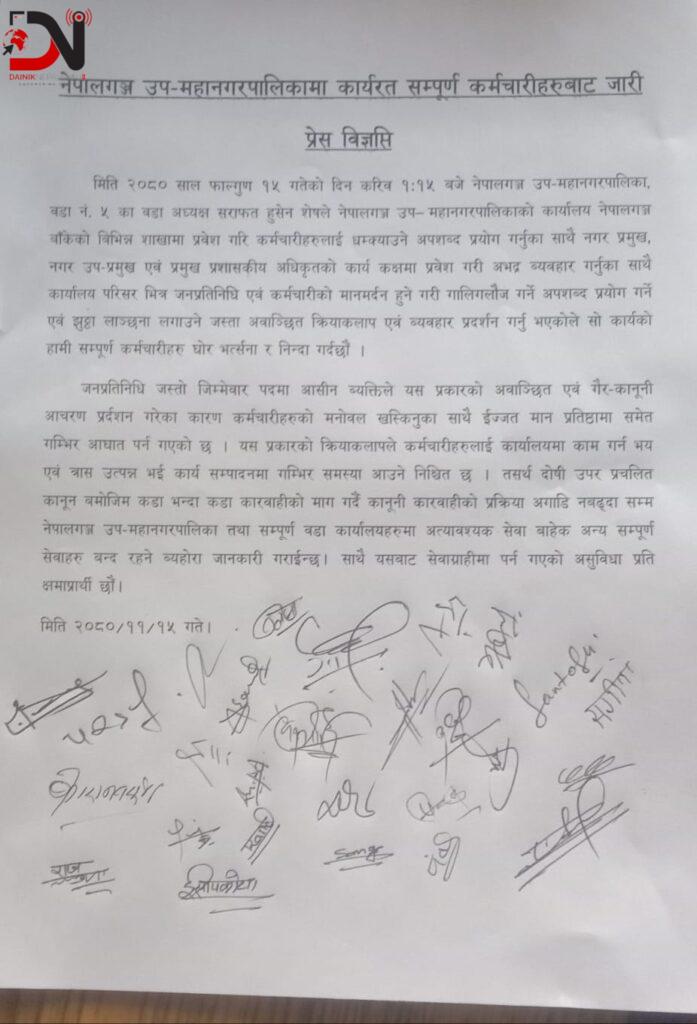 DN
DAINIK
नेपालगञ्ज उप-महानगरपालिकामा कार्यरत सम्पूर्ण कर्मचारीहरुबाट जारी
प्रेस विज्ञप्ति
मिति २०८० साल फाल्गुण १५ गतेको दिन करिव १:१५ बजे नेपालगञ्ज उप-महानगरपालिका,
वडा नं. ५ का वडा अध्यक्ष सराफत हुसेन शेषले नेपालगञ्ज उप– महानगरपालिकाको कार्यालय नेपालगञ्ज
बाँकेको विभिन्न शाखामा प्रवेश गरि कर्मचारीहरुलाई धम्क्याउने अपशब्द प्रयोग गर्नुका साथै नगर प्रमुख,
नगर उप-प्रमुख एवं प्रमुख प्रशासकीय अधिकृतको कार्य कक्षमा प्रवेश गरी अभद्र ब्यवहार गर्नुका साथै
कार्यालय परिसर भित्र जनप्रतिनिधि एवं कर्मचारीको मानमर्दन हुने गरी गालिगलौज गर्ने अपशब्द प्रयोग गर्ने
एवं झुठ्ठा लाञ्छना लगाउने जस्ता अवाञ्छित क्रियाकलाप एवं ब्यवहार प्रदर्शन गर्नु भएकोले सो कार्यको
हामी सम्पूर्ण कर्मचारीहरु घोर भर्त्सना र निन्दा गर्दछौं ।
जनप्रतिनिधि जस्तो जिम्मेवार पदमा आसीन ब्यक्तिले यस प्रकारको अवाञ्छित एवं गैर-कानूनी
आचरण प्रर्दशन गरेका कारण कर्मचारीहरुको मनोवल खस्किनुका साथै ईज्जत मान प्रतिष्ठामा समेत
गम्भिर आघात पर्न गएको छ । यस प्रकारको क्रियाकलापले कर्मचारीहरुलाई कार्यालयमा काम गर्न भय
एवं त्रास उत्पन्न भई कार्य सम्पादनमा गम्भिर समस्या आउने निश्चित छ । तसर्थ दोषी उपर प्रचलित
कानून बमोजिम कडा भन्दा कडा कारवाहीको माग गर्दै कानूनी कारवाहीको प्रक्रिया अगाडि नबढ्दा सम्म
नेपालगञ्ज उप-महानगरपालिका तथा सम्पूर्ण वडा कार्यालयहरुमा अत्यावश्यक सेवा बाहेक अन्य सम्पूर्ण
सेवाहरु बन्द रहने ब्यहोरा जानकारी गराईन्छ। साथै यसबाट सेवाग्राहीमा पर्न गएको असुविधा प्रति
क्षमाप्रार्थी छौं।
मिति २०८०/११/१५ गते।
संगीता